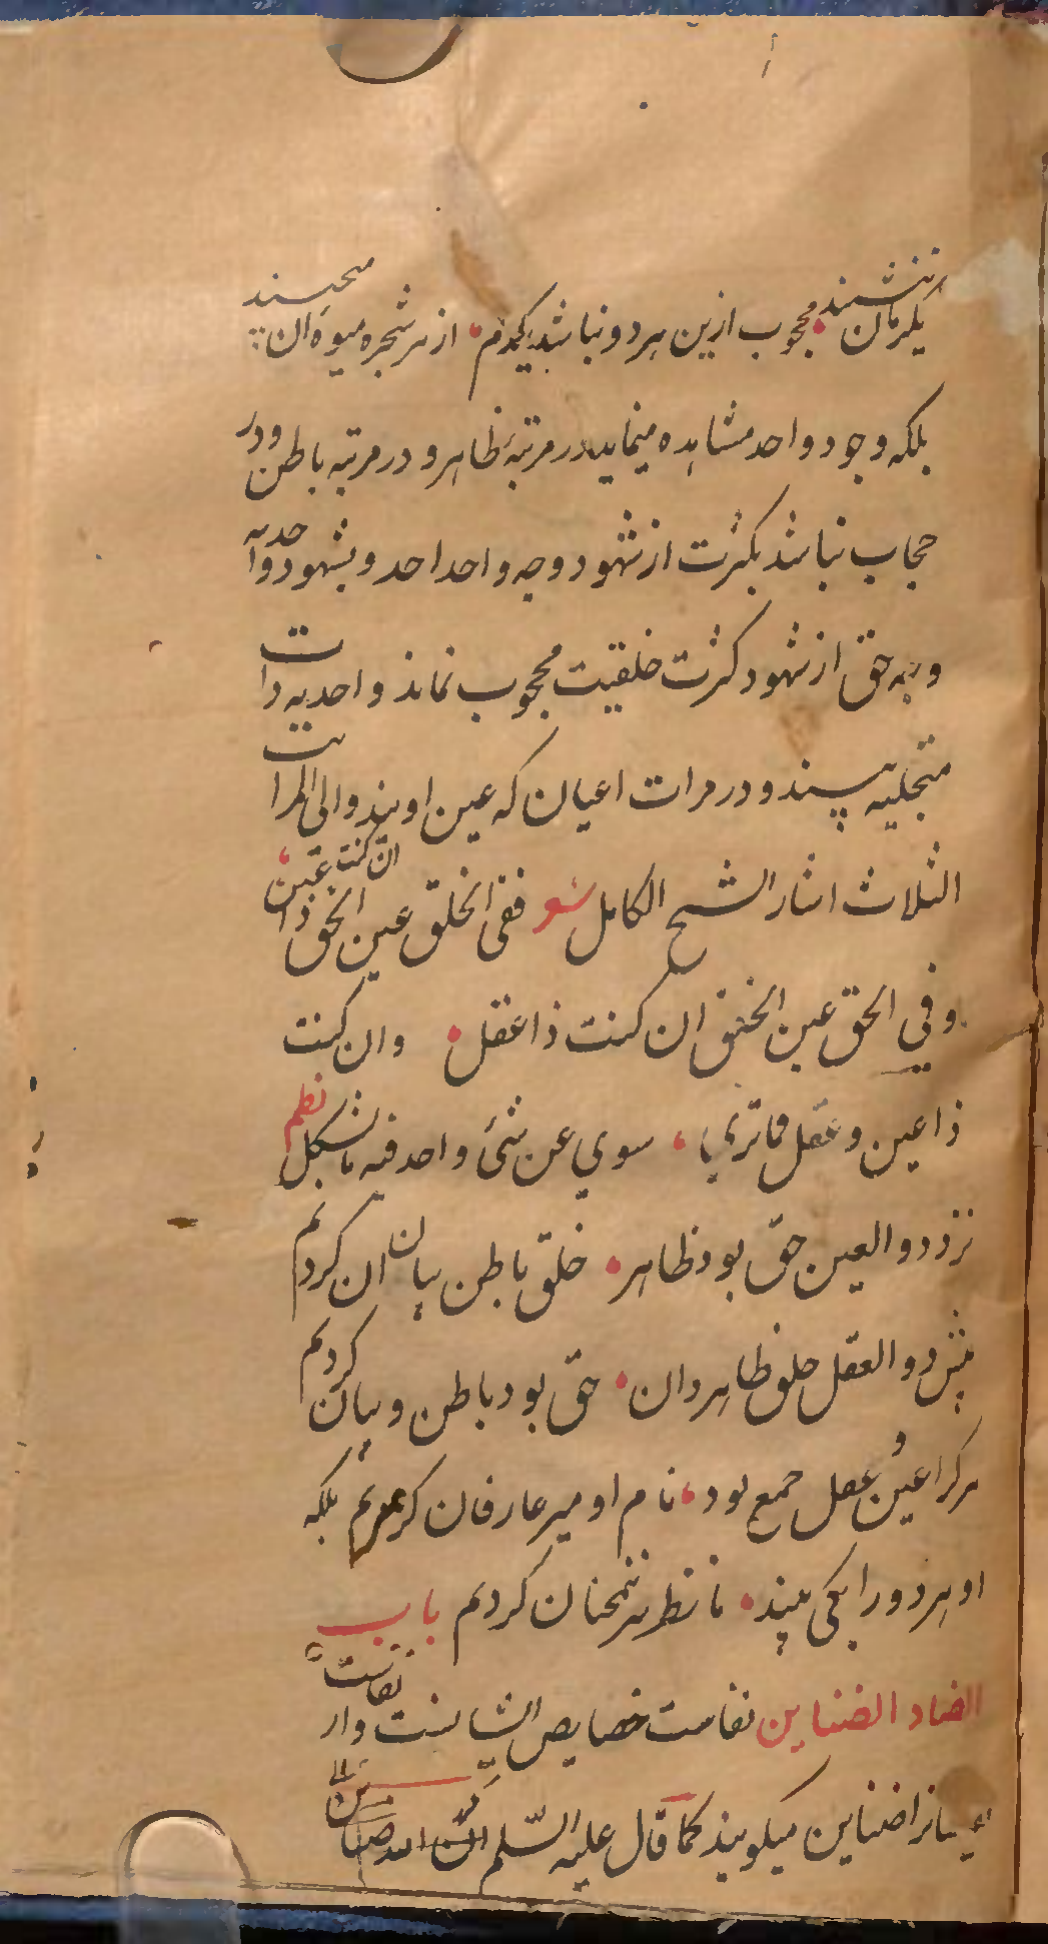 یکزمان ننشیند محجوب ازین هر دو نباشد یکدم از هر شجره میوه ان میچیند
بلکه وجود واحد مشاهده مینماید در مرتبهٔ ظاهر و در مرتبه باطن و در
حجاب نباشد بکثرت از شهود وجه واحد احد و بشهود واحدیه
وجه حق از شهود کثرت خلقیت محجوب نماند و احدیه ذات
متجلیه بیند و در مرات اعیان که عین اویند والی المراتب
الثلاث اشار الشیخ الکامل شعر ففی الخلق عین الحق ان کنت ذا عین
وفی الحق عین الخلق ان کنت ذا عقل وان کنت
ذا عین وعقل فما تری سوی عین شیء واحد فیه بالشکل نظم
نزد ذو العین حق بود ظاهر خلق باطن بیان ان کردیم
پیش ذو العقل خلق ظاهر دان حق بود باطن و بیان کردیم
هرکرا عین و عقل جمع بود نام او میر عارفان کردیم بلکه
او هر دو را یکی بیند ما نظر نیز همچنان کردیم باب
الضاد الضناین نفاست خصایص اشیاست و از نفاست
ایشانرا ضناین میکویند کما قال علیه السلم ان لله ضناین